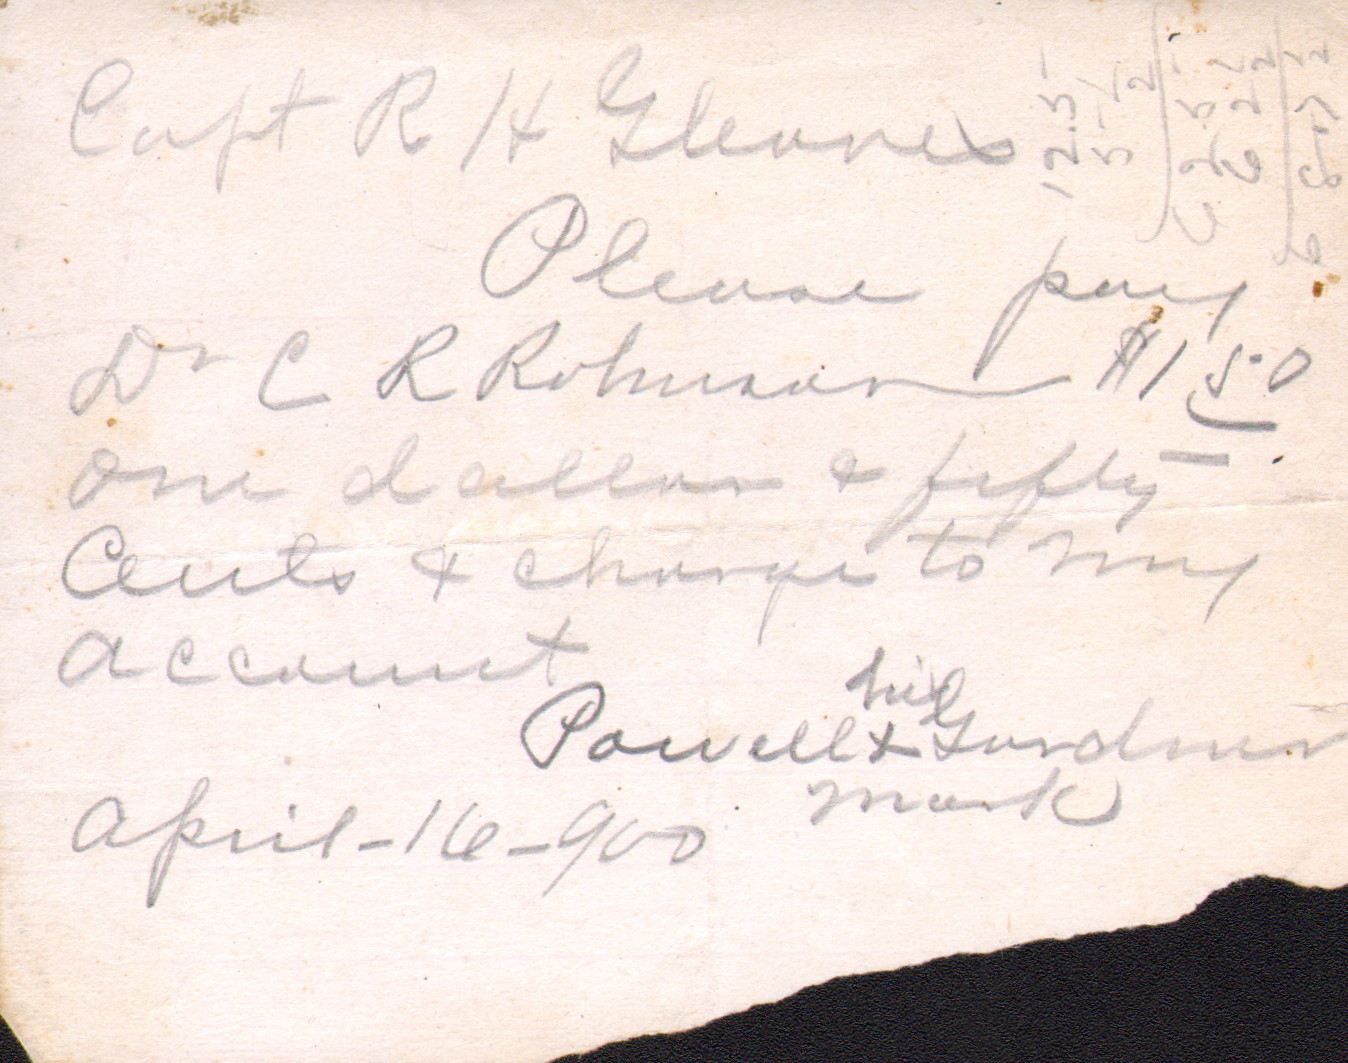 Capt R H Gleaves
Please pay
Dr C R Robinson $1 50
one dollar & fifty
Cents & charge to my
account
his
Powell x Gardner
mark
April-16-900